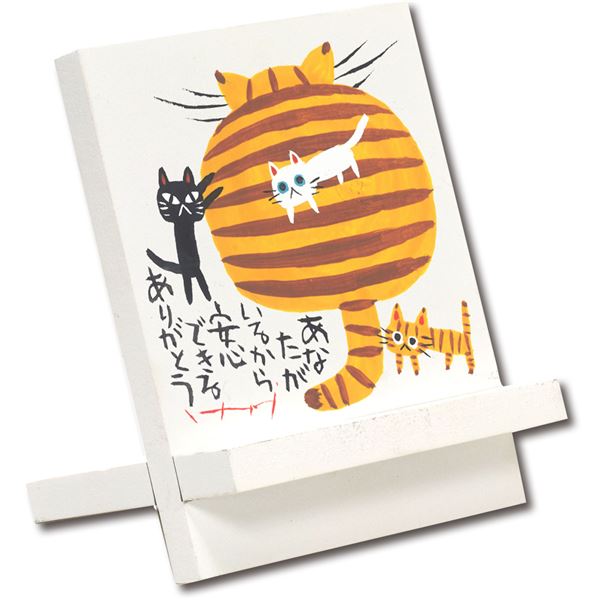 あなたが
いるから
安心
できる
ありがとう